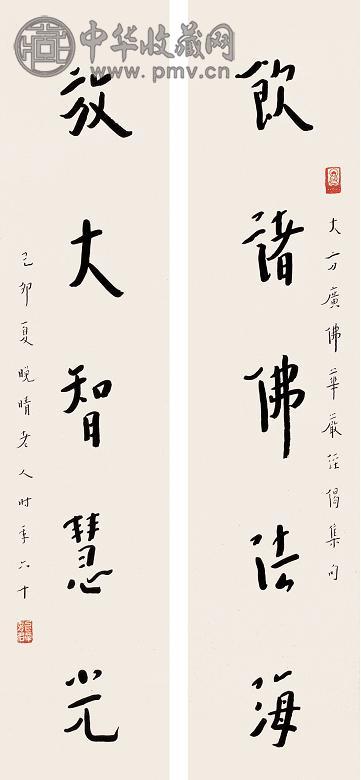 中华收藏网
www.pmv.cn
飲諸佛法海
大方廣佛華嚴經偈集句
放大智慧光
己卯夏晚晴老人时年六十